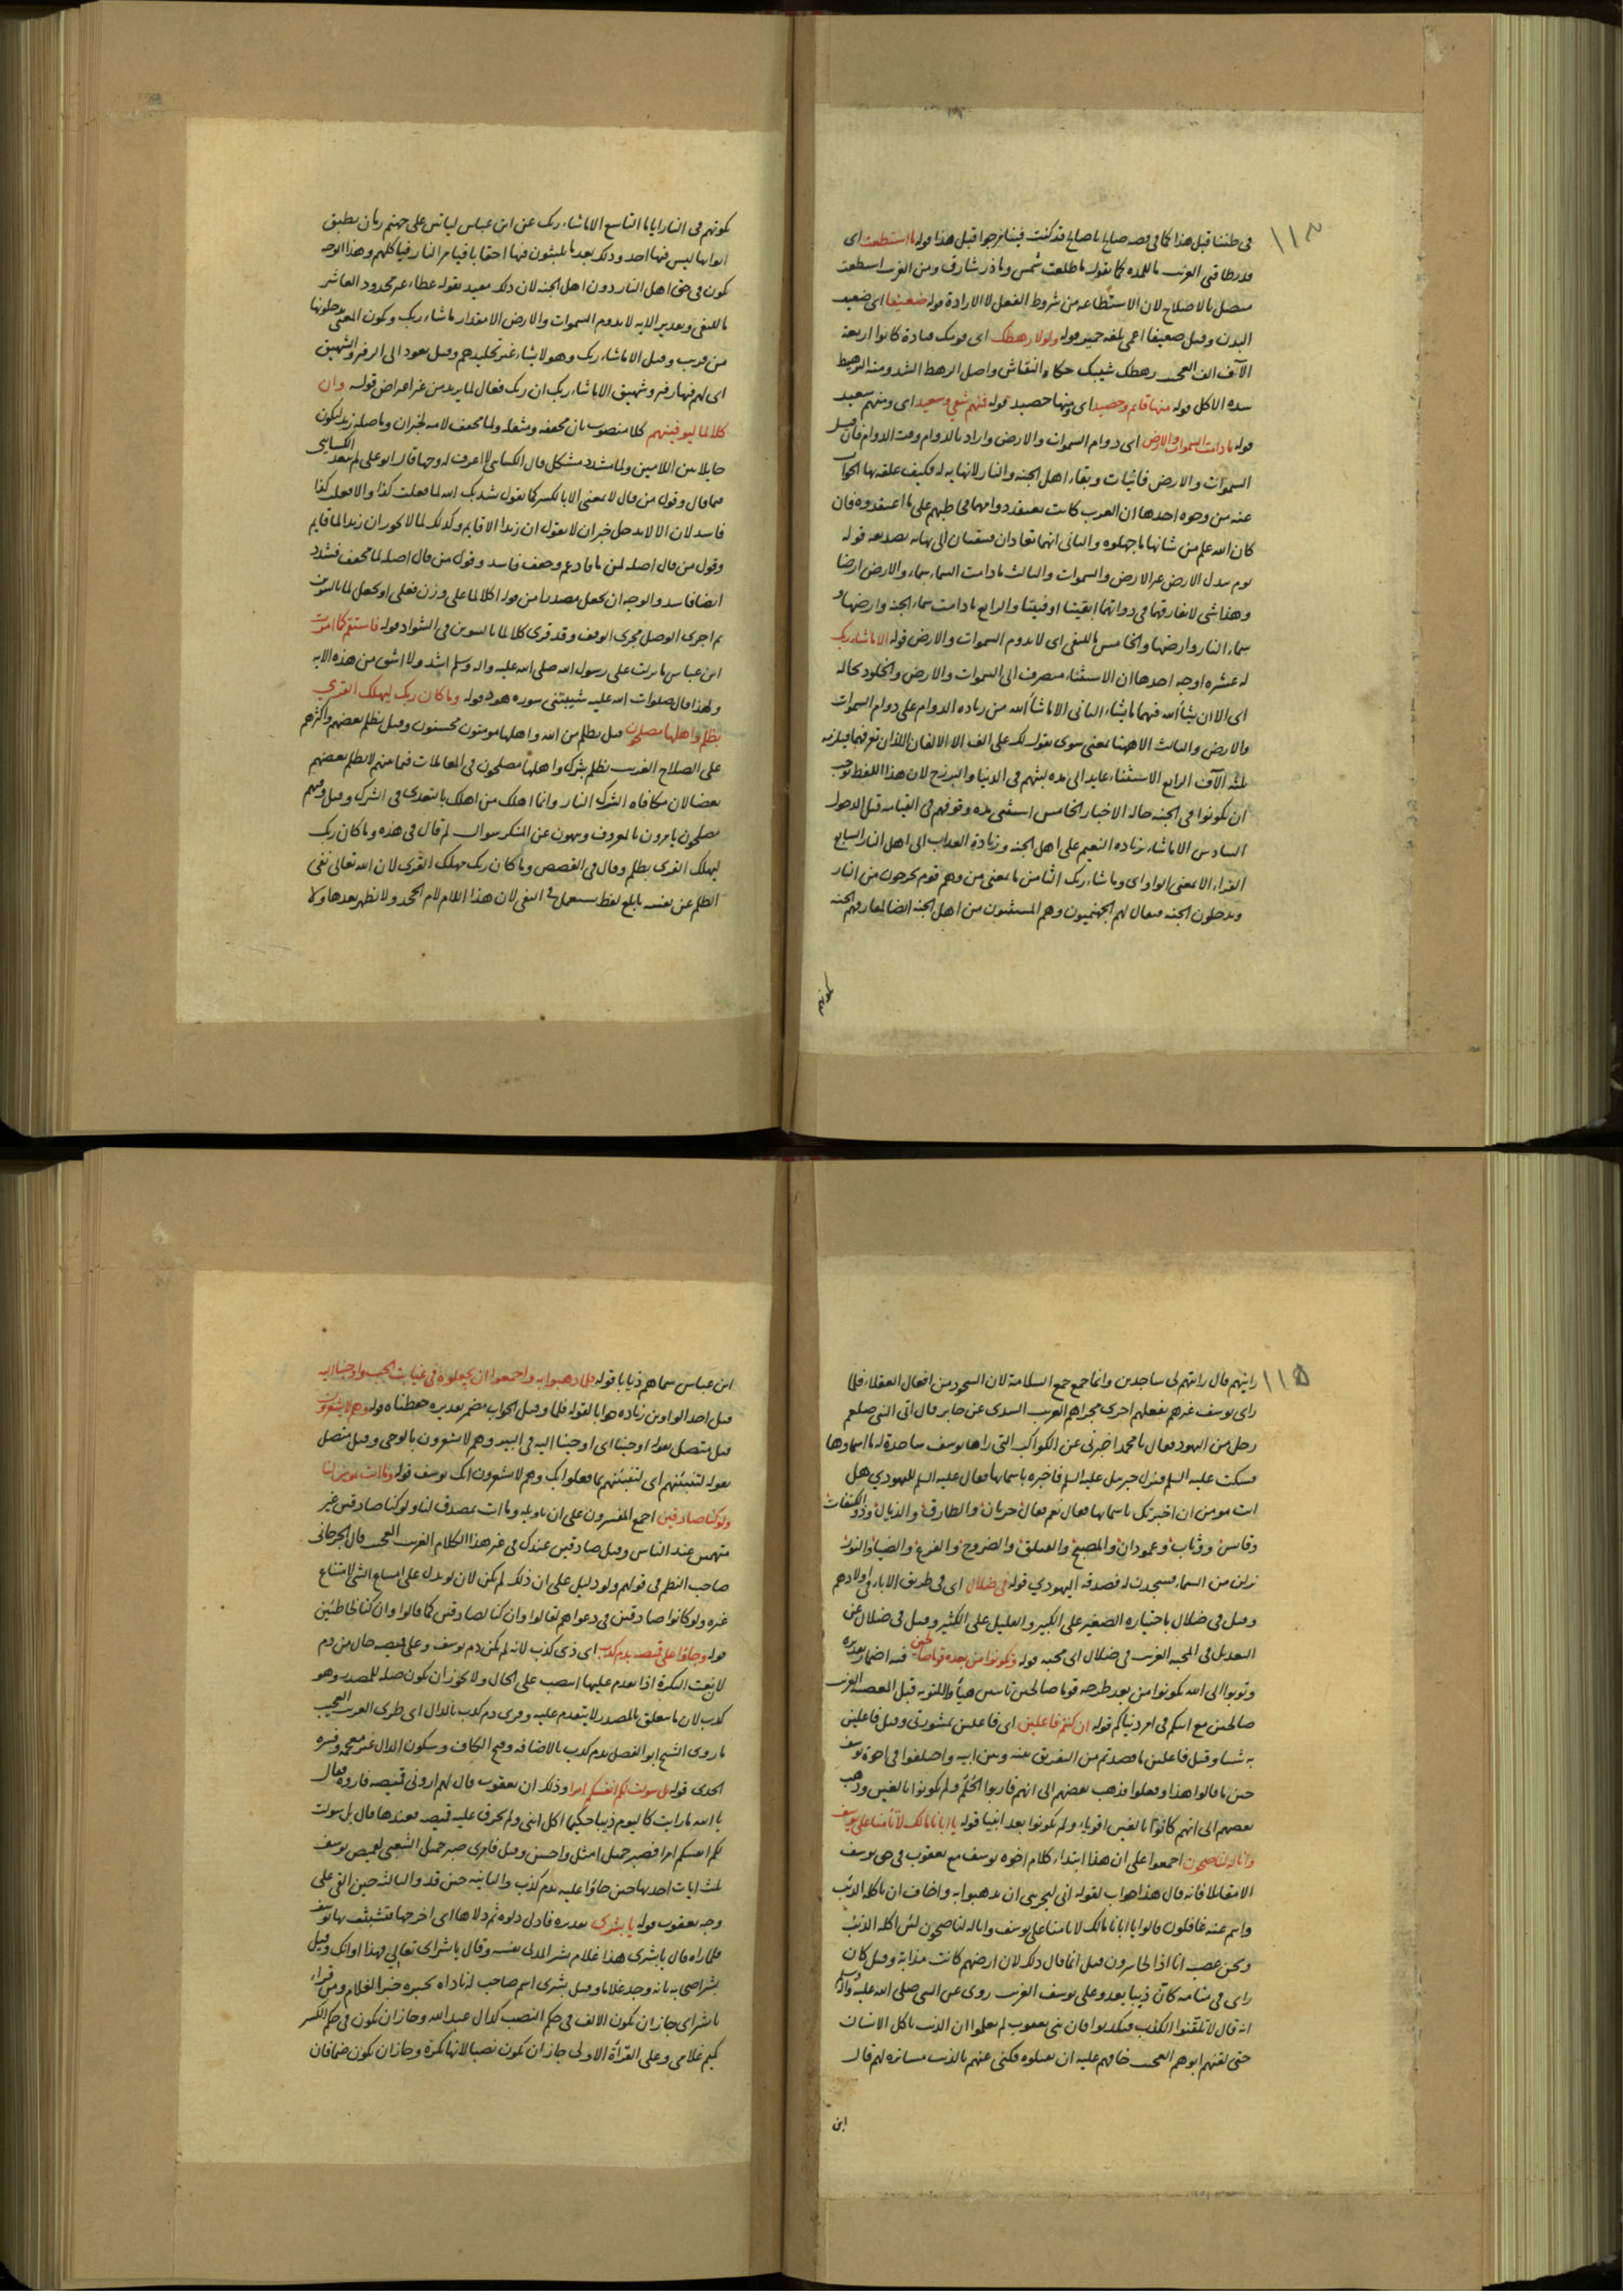 ١١٣
فى ظننا قبل هذا كما فى قصه صالح يا صالح قد كنت فينا مرجوا قبل هذا قوله ما استطعت اى
قدر طاقتى الغريب ما للمده كما تقول ما طلعت شمس وما ذر شارق ومن الغريب استطعت
متصل بالاصلاح لان الاستطاعه من شروط الفعل لا الارادة قوله ضعيفا اى ضعيف
البدن وقيل ضعيفا اعمى بلغه حمير قوله ولولا رهطك اى قومك قتادة كانوا اربعة
الآف الف العجيب رهطك شيبك حكاه النقاش واصل الرهط الشد ومنه الرهيط
شده الاكل قوله منها قائم وحصيد اى ومنها حصيد قوله فمنهم شقي وسعيد اى ومنهم سعيد
قوله ما دامت السموات والارض اى دوام السموات والارض واراد بالدوام وقت الدوام فان قيل
السموات والارض فانيات وبقاء اهل الجنه والنار لا نهايه له فكيف علقه بها الجواب
عنه من وجوه احدها ان العرب كانت تعتقد دوامهما فخاطبهم على ما اعتقدوه فان
كان الله علم من شانها ما جهلوه والثانى انهما تعادان فتبقيان الى نهايه بصديقه قوله
يوم تبدل الارض غير الارض والسموات والثالث ما دامت السماء سماء والارض ارضا
وهذا شى لا تفارقهما فى ذواتهما ابقيتا او فنيتا والرابع ما دامت سماء الجنه وارضها و
سماء النار وارضها والخامس ما للنفى اى لا تدوم السموات والارض قوله الا ما شاء ربك
له عشره اوجه احدها ان الاستثناء منصرف الى السموات والارض والخلود بحاله
اى الا ان يشأ الله فيهما ما يشاء الثانى الا ما شأ الله من زياده الدوام على دوام السموات
والارض والثالث الا ههنا بمعنى سوى تقول لك على الف الا الالفان اللذان تعرفهما فيلزمه
ثلثه الآف الرابع الاستثناء عايد الى مده لبثهم فى الدنيا والبرزخ لان هذا اللفظ يوجب
ان يكونوا فى الجنه حاله الاخبار الخامس استثنى مده وقوفهم فى القيامه قبل الدخول
السادس الا ما شاء بزياده النعيم على اهل الجنه وزيادة العذاب الى اهل النار السابع
الفراء الا بمعنى الواو اى وما شاء ربك الثامن ما بمعنى من وهم قوم يخرجون من النار
ويدخلون الجنه فيقال لهم الجهنميون وهم المستثنون من اهل الجنه ايضا لمفارقهم الجنه
كونهم
كونهم فى النار اياما التاسع الا ما شاء ربك عن ابن عباس لياتين على جهنم زمان تطبق
ابوابها ليس فيها احد وذلك بعد ما يلبثون فيها احقابا فيامر النار فياكلهم وهذا الوجه
يكون فى حق اهل النار دون اهل الجنه لان ذلك مقيد بقوله عطاء غير مجذوذ العاشر
ما للنفى وتقدير الايه لا تدوم السموات والارض الا مقدار ما شاء ربك ويكون المعنى يدخلونها
من قريب وقيل الا ما شاء ربك وهو لا يشاء غير تخليدهم وقيل يعود الى الزفير والشهيق
اى لهم فيها زفير وشهيق الا ما شاء ربك ان ربك فعال لما يريد من غير اعتراض قوله وان
كلا لما ليوفينهم كلا منصوب بان مخففه ومثقله ولما مخفف لامه لخبر ان وما صله زيد ليكون
حايلا بين اللامين ولما مشدد مشكل قال الكسائى لا اعرف له وجها قال ابو على لم يبعد الكسائى
فيما قال وقول من قال لا بمعنى الا بالكسر كما تقول نشدتك الله لما فعلت كذا والا فعلت كذا
فاسد لان الا لا يدخل خبر ان لا تقول ان زيدا الا قايم وكذلك لما لا يجوز ان زيدا لما قايم
وقول من قال اصله لمن ما فادغم وحفف فاسد وقول من قال اصله لما مخفف فشدد
ايضا فاسد والوجه ان يجعل مصدرا من قوله اكلا لما على وزن فعلى او يجعل لما بالتنوين
ثم اجرى الوصل مجرى الوقف وقد قرى كلا لما بالتنوين فى الشواذ قوله فاستقم كما امرت
ابن عباس ما نزلت على رسول الله صلى الله عليه واله وسلم اشد ولا اشق من هذه الايه
ولهذا قال صلوات الله عليه شيبتنى سوره هود قوله وما كان ربك ليهلك القرى
بظلم واهلها مصلحون قيل بظلم من الله واهلها مومنون محسنون وقيل بظلم بعضهم واكثرهم
على الصلاح الغريب بظلم بشرك واهلها مصلحون فى المعاملات فيما بينهم لا يظلم بعضهم
بعضا لان مكافاه الشرك النار وانما اهلك من اهلك بالتعدى فى الشرك وقيل وفيهم
مصلحون يامرون بالمعروف وينهون عن المنكر سوال لم قال فى هذه وما كان ربك
ليهلك القرى بظلم وقال فى القصص وما كان ربك مهلك القرى لان الله تعالى نفى
الظلم عن نفسه بابلغ لفظ يستعمل فى النفى لان هذا اللام لام الجحد ولا تظهر بعدها ولا
١١٥
رايتهم قال رايتهم لى ساجدين وانما جمع جمع السلامة لان السجود من افعال العقلاء فلما
راى يوسف غيرهم بفعلهم اجرى مجراهم الغريب السدى عن جابر قال اتى النبى صلعم
رجل من اليهود فقال يا محمد اخبرنى عن الكواكب التى راها يوسف ساجدة له ما اسماوها
فسكت عليه السلم فنزل جبريل عليه السلم فاخبره باسمائها فقال عليه السلم لليهودي هل
انت مومن ان اخبرتك باسمائها فقال نعم فقال حربان والطارق والذيال وذو الكنفات
وقابس ووثاب وعمودان والمصبح والفيلق والضروح والفرغ والضياء والنور
نزلن من السماء فسجدت له فصدقه اليهودي قوله فى ضلال اى فى طريق الاباء فى اولادهم
وقيل فى ضلال باختياره الصغير على الكبير والقليل على الكثير وقيل فى ضلال عن
التعديل فى المحبه الغريب فى ضلال اى محبه قوله وتكونوا من بعده قوما صالحين فيه اضمار تقديره
وتوبوا الى الله تكونوا من بعد طرحه قوما صالحين تائبين هيأوا للتوبه قبل المعصيه الغريب
صالحين مع ابيكم فى امر دنياكم قوله ان كنتم فاعلين اى فاعلين بمشورتى وقيل فاعلين
به شيئا وقيل فاعلين ما قصدتم من التفريق بينه وبين ابيه واختلفوا فى اخوة يوسف
حين ما قالوا هذا وفعلوا فذهب بعضهم الى انهم قاربوا الحُلُم ولم يكونوا بالغين وذهب
بعضهم الى انهم كانوا بالغين اقوياء ولم يكونوا بعد انبيا قوله يا ابانا مالك لا تأمنا على يوسف
وانا له لناصحون اجمعوا على ان هذا ابتداء كلام اخوه يوسف مع يعقوب فى حق يوسف
الا مقاتلا فانه قال هذا جواب لقوله انى ليحزننى ان تذهبوا به واخاف ان ياكله الذئب
وانتم عنه غافلون قالوا يا ابانا مالك لا تامنا على يوسف وانا له لناصحون لئن اكله الذئب
ونحن عصبه انا اذا لخاسرون قيل انما قال ذلك لان ارضهم كانت مذابة وقيل كان
راى فى منامه كان ذيبا يعدو على يوسف الغريب روى عن النبى صلى الله عليه واله وسلم
انه قال لا تلقنوا الكذب فتكذبوا فان بنى يعقوب لم يعلموا ان الذيب ياكل الانسان
حتى لقنهم ابوهم العجيب خافهم عليه ان يقتلوه فكنى عنهم بالذيب مساتره لهم قال
ابن
ابن عباس سماهم ذيابا قوله فلما ذهبوا به واجمعوا ان يجعلوه فى غيابت الجب واوحينا اليه
قيل احد الواوين زياده جوابا لقوله فلما وقيل الجواب مضمر تقديره حفظناه قوله وهم لا يشعرون
قيل متصل بقوله اوحينا اى اوحينا اليه فى البير وهم لا يشعرون بالوحى وقيل متصل
بقوله لتنبئنهم اى لتنبئنهم بما فعلوا بك وهم لا يشعرون انك يوسف قوله وما انت بمومن لنا
ولو كنا صادقين اجمع المفسرون على ان تاويله وما انت بمصدق لنا ولو كنا صادقين غير
متهمين عند الناس وقيل صادقين عندك فى غير هذا الكلام الغريب العجيب قال الجرجانى
صاحب النظم فى قولهم ولو دليل على ان ذلك لم يكن لان لو يدل على امتناع الشى لامتناع
غيره ولو كانوا صادقين فى دعواهم لقالوا وان كنا لصادقين كما قالوا وان كنا لخاطئين
قوله وجاؤا على قميصه بدم كذب اى ذى كذب لانه لم يكن دم يوسف وعلى قميصه حال من دم
لان نعت النكرة اذا تقدم عليها انتصب على الحال ولا يجوز ان يكون صله للمصدر وهو
كذب لان ما يتعلق بالمصدر لا يتقدم عليه وقرى دم كدب بالدال اى طرى الغريب العجيب
ما روى الشيخ ابو الفضل بدم كدب بالاضافه وفتح الكاف وسكون الدال غير معجمه وفسره
الجدى قوله بل سولت لكم انفسكم امرا وذلك ان يعقوب قال لهم ارونى قميصه فاروه فقال
يا الله ما رايت كاليوم ذيبا حكيما اكل ابنى ولم يخرق عليه قميصه فعندها قال بل سولت
لكم انفسكم امرا فصبر جميل امثل واحسن وقيل فامرى صبر جميل الشعبى لقميص يوسف
ثلث ايات احدها حين جاؤا عليه بدم كذب والثانيه حين قد والثالثه حين القى على
وجه يعقوب قوله يا بشرى تقديره فادلى دلوه ثم دلاها اى اخرجها فتشبث بها يوسف
فلما راه قال يا بشرى هذا غلام بشر المدلى نفسه وقال يا بشراى تعالى فهذا اوانك وقيل
بشر اصحابه بانه وجد غلاما وقيل بشرى اسم صاحب له ناداه يخبره خبر الغلام ومن قراء
يا بشراى جاز ان يكون الالف فى حكم النصب كما قال عبد الله وجاز ان يكون فى حكم الكسر
كميم غلامى وعلى القرأة الاولى جاز ان يكون نصبا لانها نكرة وجاز ان يكون ضما فان